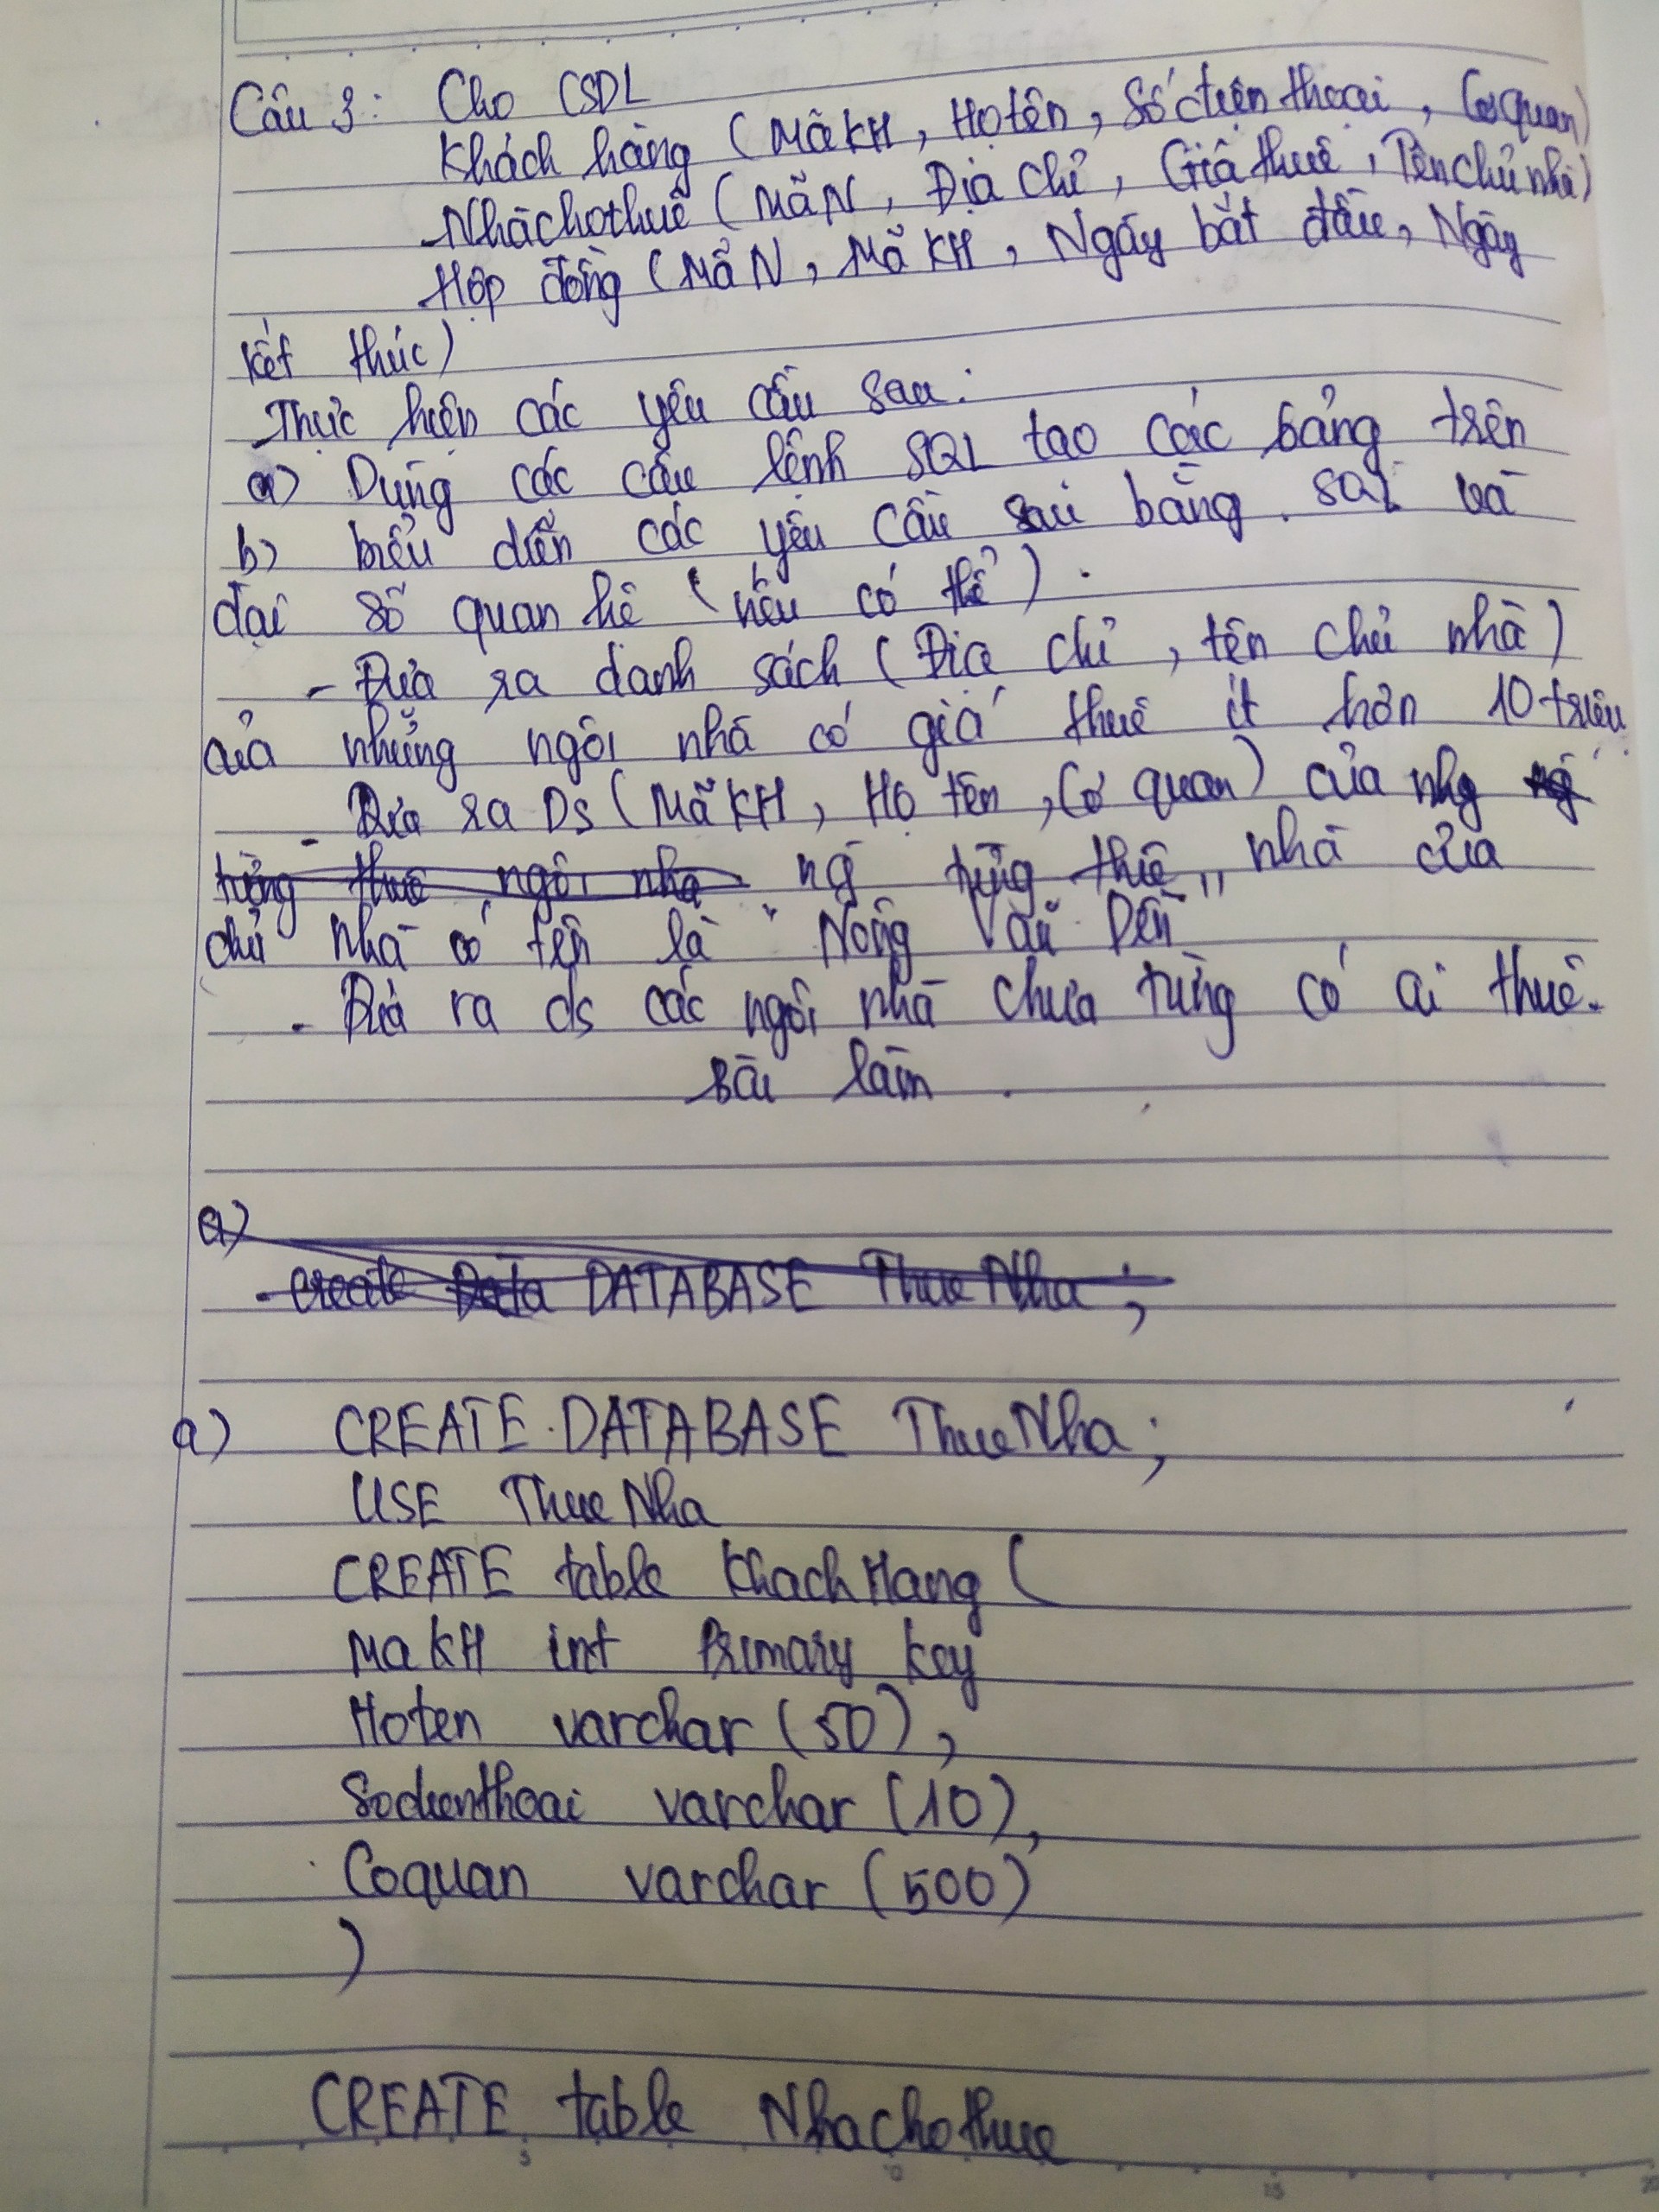 Câu 3: Cho CSDL
Khách hàng (MãKH, Họ tên, Số điện thoại, Cơ quan)
Nhàchothuê (MãN, Địa chỉ, Giá thuê, Tên chủ nhà)
Hợp đồng (MãN, Mã KH, Ngày bắt đầu, Ngày
kết thúc)
Thực hiện các yêu cầu sau:
a) Dùng các câu lệnh SQL tạo các bảng trên
b) biểu diễn các yêu cầu sau bằng SQL và
đại số quan hệ (nếu có thể).
- Đưa ra danh sách (Địa chỉ, tên chủ nhà)
của những ngôi nhà có giá thuê ít hơn 10 triệu.
- Đưa ra Ds (MãKH, Họ tên, Cơ quan) của nhg ng
từng thuê ngôi nhà ng từng thuê nhà của
chủ nhà có tên là "Nông Văn Dền"
- Đưa ra ds các ngôi nhà chưa từng có ai thuê.
Bài làm
a)
- Create Data DATABASE ThueNha;
a) CREATE DATABASE ThueNha;
USE ThueNha
CREATE table KhachHang (
MaKH int Primary key
Hoten varchar (50),
Sodienthoai varchar (10),
Coquan varchar (500)
)
CREATE table Nhachothue